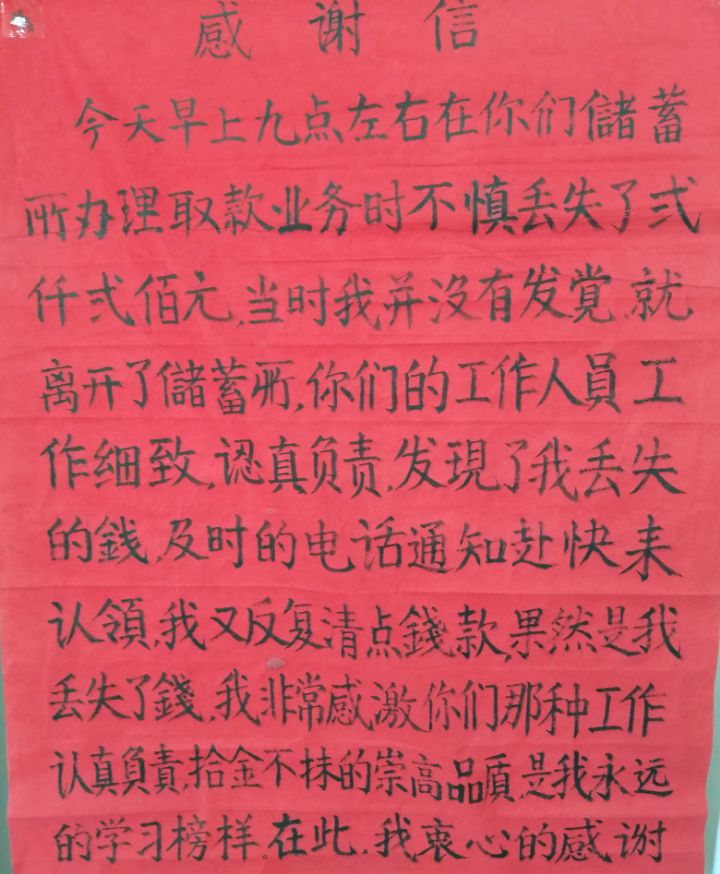 感谢信
今天早上九点左右在你们儲蓄
所办理取款业务时不慎丢失了弍
仟弍佰元,当时我并沒有发覚,就
离开了儲蓄所,你们的工作人員工
作细致,認真负责,发現了我丢失
的銭,及时的电话通知赴快来
认領,我又反复清点錢款,果然是我
丢失了錢,我非常感激你们那种工作
认真負責,拾金不抹的崇高品质,是我永远
的学习榜样,在此,我衷心的感谢